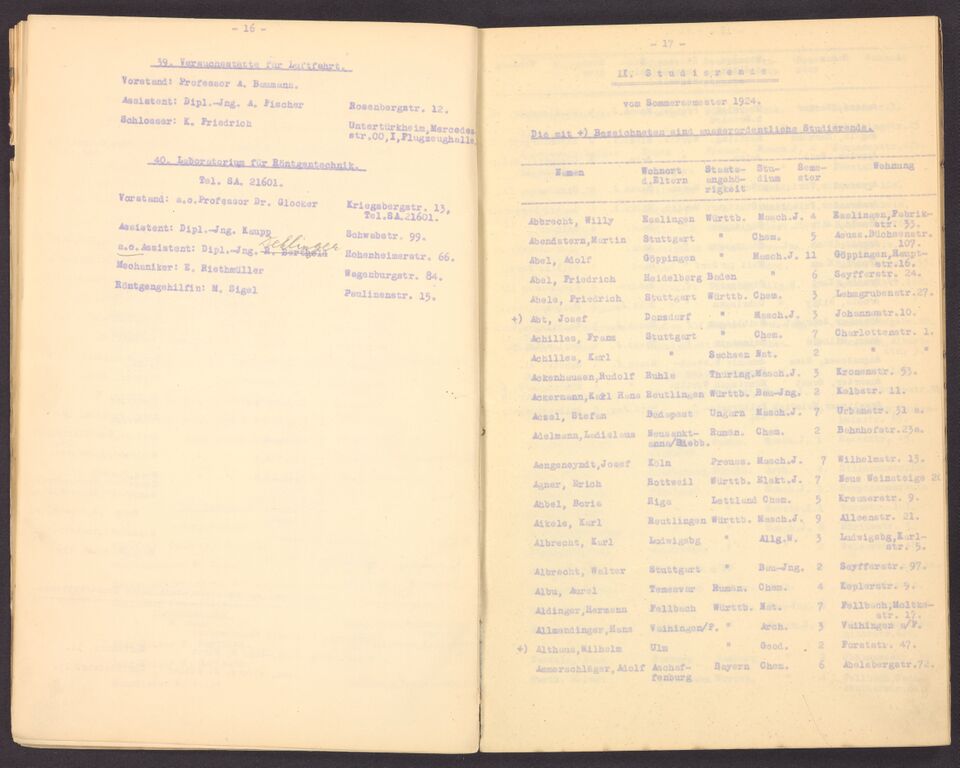 - 16 -
39. Versuchsstätte für Luftfahrt.
Vorstand: Professor A. Baumann.
Assistent: Dipl.-Jng. A. Fischer Rosenbergstr. 12.
Schlosser: K. Friedrich Untertürkheim, Mercedes
str.00,I,Flugzeughalle.
40. Laboratorium für Röntgentechnik.
Tel. SA. 21601.
Vorstand: a.o.Professor Dr. Glocker Kriegsbergstr. 13,
Tel.SA.21601.
Assistent: Dipl.-Jng. Kaupp Schwabstr. 99.
Zeblinger
a.o.Assistent: Dipl.-Jng. R. Berthold Hohenheimerstr. 66.
Mechaniker: E. Riethmüller Wagenburgstr. 84.
Röntgengehilfin: M. Sigel Paulinenstr. 15.
- 17 -
IX. Studierende
vom Sommersemester 1924.
Die mit +) Bezeichneten sind ausserordentliche Studierende.
Namen Wohnort Staats- Stu- Seme- Wohnung
d.Eltern angehö- dium ster
rigkeit
Abbrecht, Willy Esslingen Württb. Masch.J. 4 Esslingen,Fabrik-
str. 33.
Abendstern,Martin Stuttgart " Chem. 5 Äuss.Büchsenstr.
107.
Abel, Adolf Göppingen " Masch.J. 11 Göppingen,Haupt-
str.16.
Abel, Friedrich Heidelberg Baden " 6 Seyfferstr. 24.
Abele, Friedrich Stuttgart Württb. Chem. 3 Lehmgrubenstr.27.
+) Abt, Josef Donzdorf " Masch.J. 3 Johannesstr.10.
Achilles, Franz Stuttgart " Chem. 7 Charlottenstr. 1.
Achilles, Karl " Sachsen Nat. 2 " "
Ackenhausen,Rudolf Ruhla Thüring.Masch.J. 3 Kronenstr. 53.
Ackermann,Karl Hans Reutlingen Württb. Bau-Jng. 2 Kolbstr. 11.
Aczel, Stefan Budapest Ungarn Masch.J. 7 Urbanstr. 31 a.
Adelmann,Ladislaus Neusankt- Rumän. Chem. 2 Bahnhofstr.23a.
anna/Siebb.
Aengeneyndt,Josef Köln Preuss. Masch.J. 7 Wilhelmstr. 13.
Agner, Erich Rottweil Württb. Elekt.J. 7 Neue Weinsteige 20
Ahbel, Boris Riga Lettland Chem. 5 Kreuserstr. 9.
Aikele, Karl Reutlingen Württb. Masch.J. 9 Alleenstr. 21.
Albrecht, Karl Ludwigsbg " Allg.W. 3 Ludwigsbg,Karl-
str. 5.
Albrecht, Walter Stuttgart " Bau-Jng. 2 Seyfferstr. 97.
Albu, Aurel Temesvar Rumän. Chem. 4 Keplerstr. 9.
Aldinger,Hermann Fellbach Württb. Nat. 7 Fellbach,Moltke-
str. 19.
Allmendinger,Hans Vaihingen/F. " Arch. 3 Vaihingen a/F.
+) Althaus,Wilhelm Ulm " Geod. 2 Forststr. 47.
Ammerschläger, Adolf Aschaf- Bayern Chem. 6 Abelsbergstr.72.
fenburg